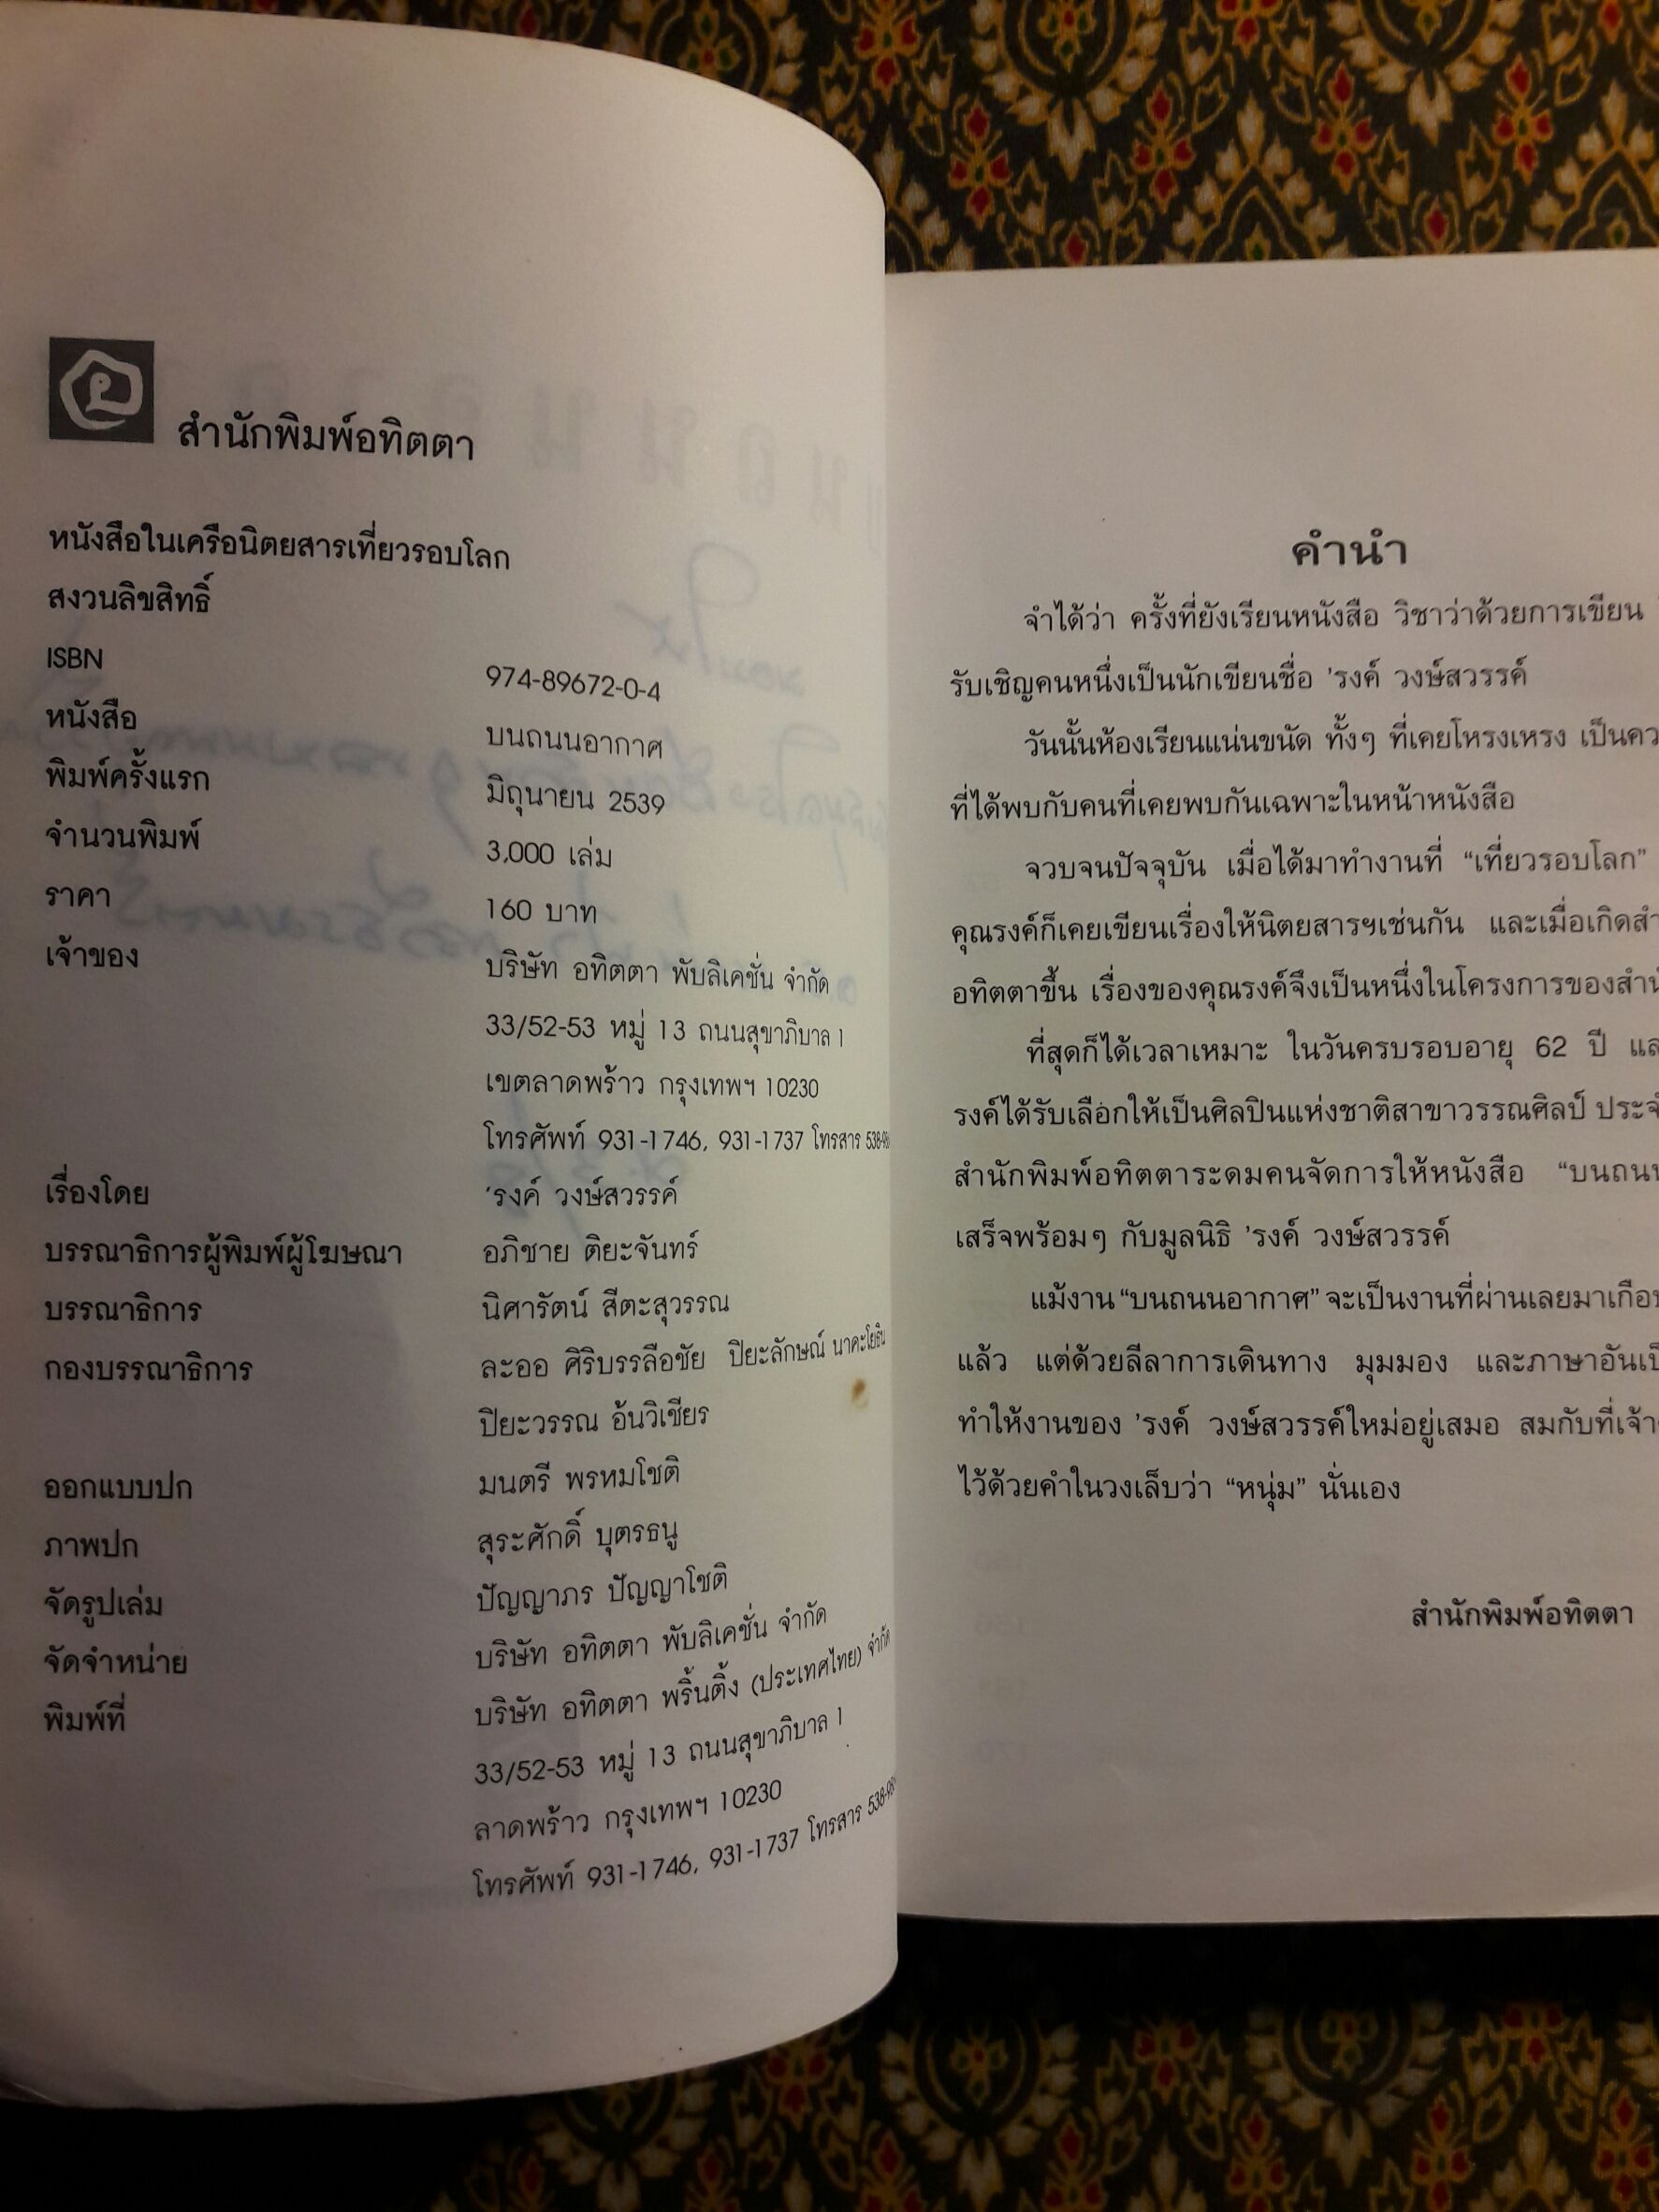 สำนักพิมพ์อทิตตา
หนังสือในเครือนิตยสารเที่ยวรอบโลก
สงวนลิขสิทธิ์
ISBN 974-89672-0-4
หนังสือ บนถนนอากาศ
พิมพ์ครั้งแรก มิถุนายน 2539
จำนวนพิมพ์ 3,000 เล่ม
ราคา 160 บาท
เจ้าของ บริษัท อทิตตา พับลิเคชั่น จำกัด
33/52-53 หมู่ 13 ถนนสุขาภิบาล 1
เขตลาดพร้าว กรุงเทพฯ 10230
โทรศัพท์ 931-1746, 931-1737 โทรสาร
เรื่องโดย 'รงค์ วงษ์สวรรค์
บรรณาธิการผู้พิมพ์ผู้โฆษณา อภิชาย ติยะจันทร์
บรรณาธิการ นิศารัตน์ สีตะสุวรรณ
กองบรรณาธิการ ละออ ศิริบรรลือชัย ปิยะลักษณ์ นาคะโยธิน
ปิยะวรรณ อ้นวิเชียร
ออกแบบปก มนตรี พรหมโชติ
ภาพปก สุระศักดิ์ บุตรธนู
จัดรูปเล่ม ปัญญาภร ปัญญาโชติ
จัดจำหน่าย บริษัท อทิตตา พับลิเคชั่น จำกัด
พิมพ์ที่ บริษัท อทิตตา พริ้นติ้ง (ประเทศไทย) จำกัด
33/52-53 หมู่ 13 ถนนสุขาภิบาล 1
ลาดพร้าว กรุงเทพฯ 10230
โทรศัพท์ 931-1746, 931-1737 โทรสาร
คำนำ
จำได้ว่า ครั้งที่ยังเรียนหนังสือ วิชาว่าด้วยการเขียน
รับเชิญคนหนึ่งเป็นนักเขียนชื่อ 'รงค์ วงษ์สวรรค์
วันนั้นห้องเรียนแน่นขนัด ทั้งๆ ที่เคยโหรงเหรง เป็น
ที่ได้พบกับคนที่เคยพบกันเฉพาะในหน้าหนังสือ
จวบจนปัจจุบัน เมื่อได้มาทำงานที่ "เที่ยวรอบโลก"
คุณรงค์ก็เคยเขียนเรื่องให้นิตยสารฯเช่นกัน และเมื่อเกิด
อทิตตาขึ้น เรื่องของคุณรงค์จึงเป็นหนึ่งในโครงการของ
ที่สุดก็ได้เวลาเหมาะ ในวันครบรอบอายุ 62 ปี
รงค์ได้รับเลือกให้เป็นศิลปินแห่งชาติสาขาวรรณศิลป์
สำนักพิมพ์อทิตตาระดมคนจัดการให้หนังสือ
เสร็จพร้อมๆ กับมูลนิธิ 'รงค์ วงษ์สวรรค์
แม้งาน "บนถนนอากาศ" จะเป็นงานที่ผ่านเลยมา
แล้ว แต่ด้วยลีลาการเดินทาง มุมมอง และภาษา
ทำให้งานของ 'รงค์ วงษ์สวรรค์ใหม่อยู่เสมอ สมกับที่
ไว้ด้วยคำในวงเล็บว่า "หนุ่ม" นั่นเอง
สำนักพิมพ์อทิตตา